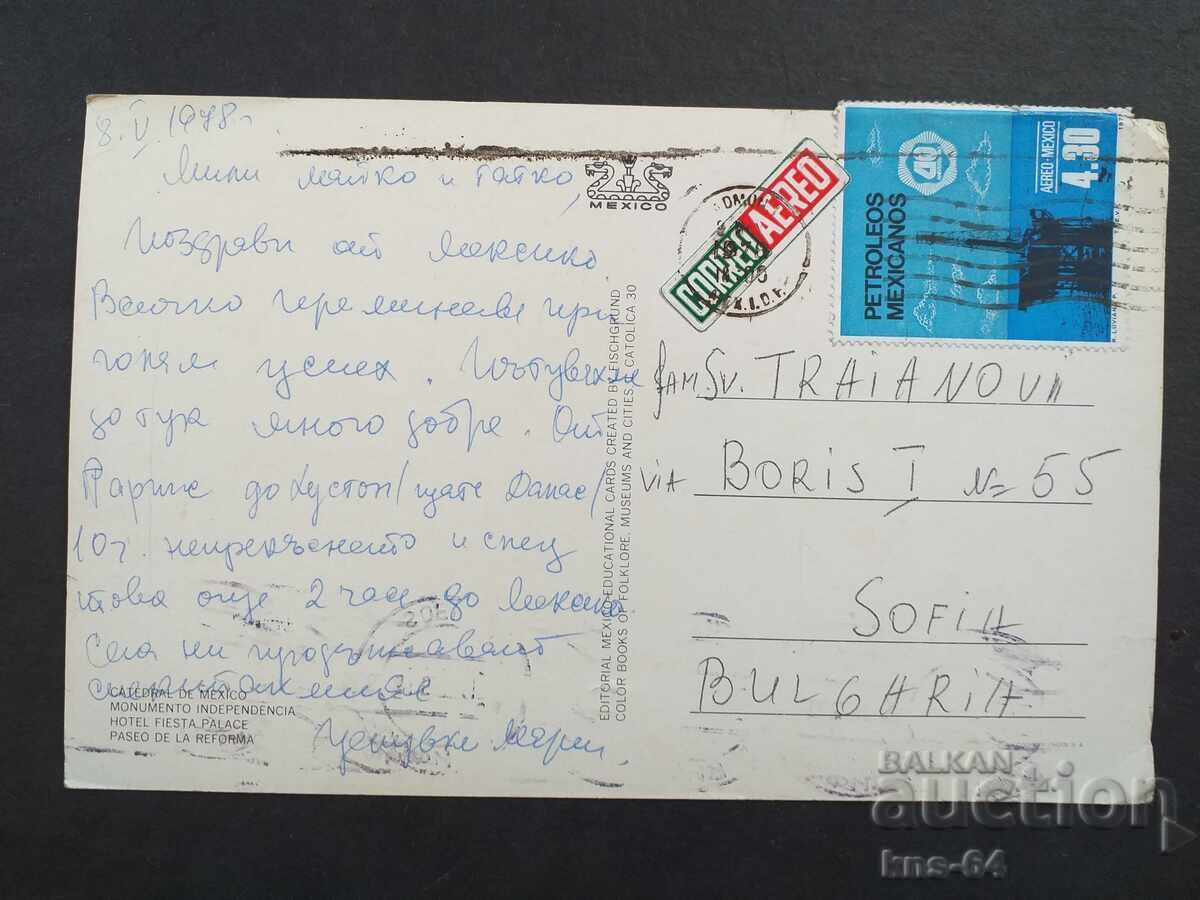 8. V 1978 г.
Мили майко и татко,
Поздрави от Мексико.
Всичко преминава при
голям успех. Пътувахме
до тук много добре. От
Париж до Хустон /щата Далас/
10 ч. непрекъснато и след
това още 2 часа до Мексико.
Сега ни продължават
Целувки Мери
CATEDRAL DE MEXICO
MONUMENTO INDEPENDENCIA
HOTEL FIESTA PALACE
PASEO DE LA REFORMA
MEXICO
EDITORIAL MEXICO-EDUCATIONAL CARDS CREATED BY FISCHGRUND
COLOR BOOKS OF FOLKLORE, MUSEUMS AND CITIES. CATOLICA 30
CORREO AEREO
PETROLEOS
MEXICANOS
40
AEREO-MEXICO
4.30
fam Sv. TRAIANOVI
VIA BORIS I № 55
SOFIA
BULGARIA
BALKAN
auction
kns-64